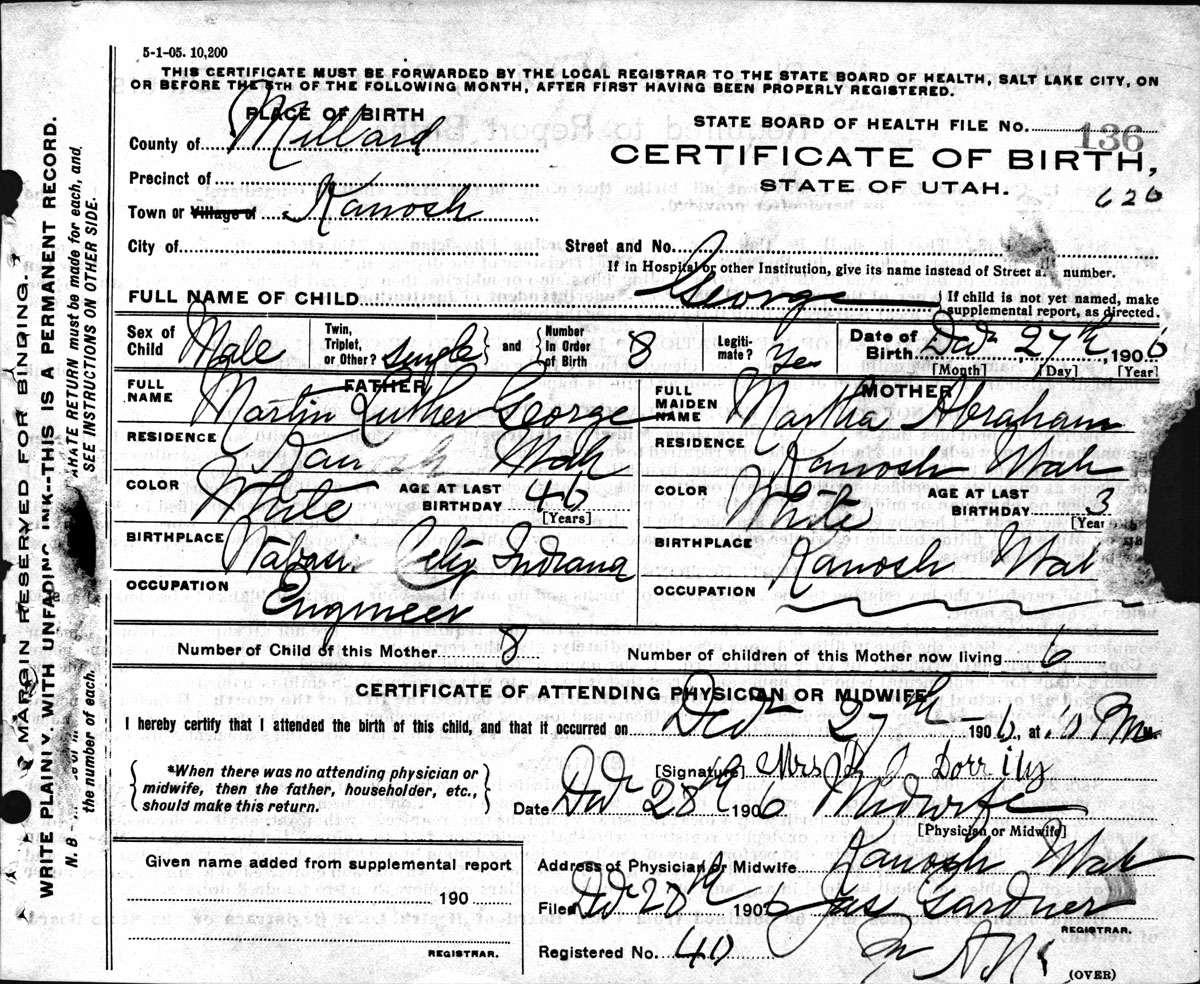 5-1-05. 10,200
THIS CERTIFICATE MUST BE FORWARDED BY THE LOCAL REGISTRAR TO THE STATE BOARD OF HEALTH, SALT LAKE CITY, ON
OR BEFORE THE 5TH OF THE FOLLOWING MONTH, AFTER FIRST HAVING BEEN PROPERLY REGISTERED.
PLACE OF BIRTH
County of Millard
Precinct of
Town or Village of Kanosh
City of
STATE BOARD OF HEALTH FILE No. 136
CERTIFICATE OF BIRTH,
STATE OF UTAH.
626
Street and No.
If in Hospital or other Institution, give its name instead of Street number.
FULL NAME OF CHILD George
If child is not yet named, make
supplemental report, as directed.
Sex of Child Male
Twin, Triplet, or Other? single and Number In Order of Birth 8
Legiti-mate? Yes
Date of Birth 27th, 1906
[Month] [Day] [Year]
FATHER
FULL NAME Martin Luther George
RESIDENCE Utah
COLOR White AGE AT LAST BIRTHDAY 46
[Years]
BIRTHPLACE City Indiana
OCCUPATION Engineer
MOTHER
FULL MAIDEN NAME Martha Abraham
RESIDENCE Kanosh Utah
COLOR White AGE AT LAST BIRTHDAY 3
BIRTHPLACE Kanosh Utah
OCCUPATION
Number of Child of this Mother 8 Number of children of this Mother now living 6
CERTIFICATE OF ATTENDING PHYSICIAN OR MIDWIFE
I hereby certify that I attended the birth of this child, and that it occurred on 27th 1906, at 10 PM
*When there was no attending physician or
midwife, then the father, householder, etc.,
should make this return.
[Signature] Mrs
Date 28th 1906 Midwife
[Physician or Midwife]
Given name added from supplemental report
190
REGISTRAR.
Address of Physician or Midwife Kanosh Utah
Filed 28th 1906 Jas Gardner
REGISTRAR.
Registered No. 40
(OVER)
MARGIN RESERVED FOR BINDING.
WRITE PLAINLY, WITH UNFADING INK--THIS IS A PERMANENT RECORD.
RETURN must be made for each, and
the number of each.
SEE INSTRUCTIONS ON OTHER SIDE.